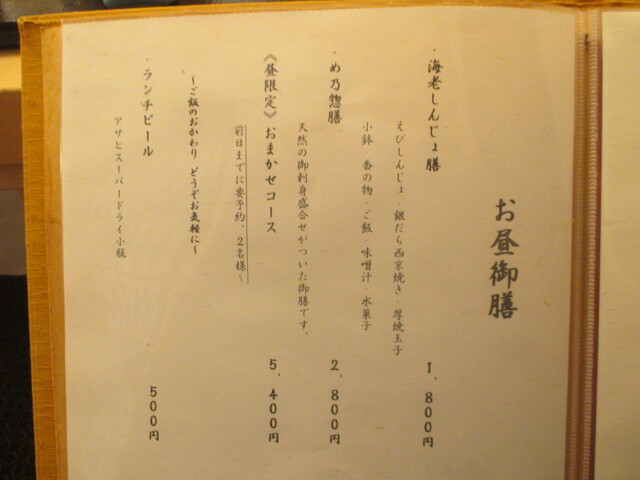 お昼御膳
・海老しんじょ膳 1,800円
えびしんじょ・銀だら西京焼き・厚焼玉子
小鉢・香の物・ご飯・味噌汁・水菓子
・め乃惣膳 2,800円
天然の御刺身盛合せがついた御膳です。
《昼限定》おまかせコース 5,400円
前日までに要予約、2名様~
~ご飯のおかわり どうぞお気軽に~
・ランチビール 500円
アサヒスーパードライ小瓶